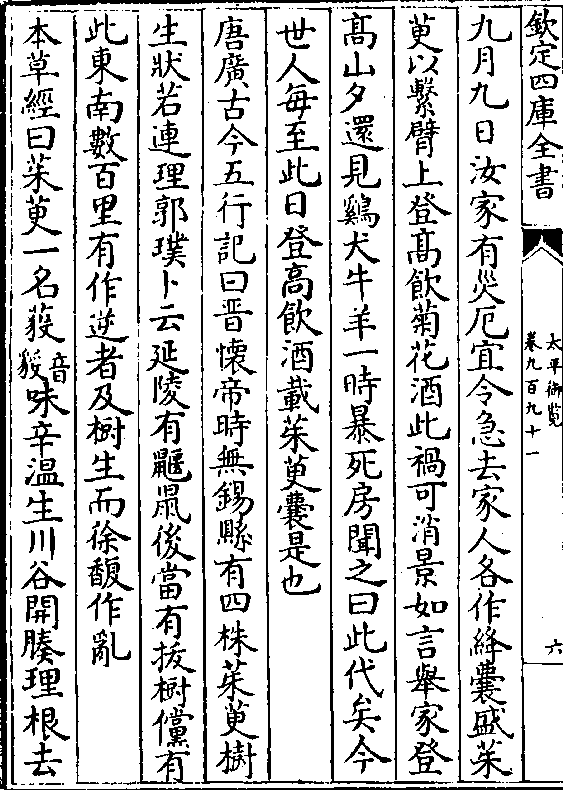 欽定四庫全書
太平御覽
卷九百九十一
六
九月九日汝家有災厄宜令急去家人各作絳囊盛茱
萸以繫臂上登髙飲菊花酒此禍可消景如言舉家登
髙山夕還見鷄犬牛羊一時暴死房聞之曰此代矣今
世人每至此日登高飲酒載茱萸囊是也
唐廣古今五行記曰晋懷帝時無錫縣有四株茱萸樹
生狀若連理郭璞卜云延陵有鼴鼠後當有抜樹儻有
此東南數百里有作逆者及樹生而徐馥作亂
本草經曰茱萸一名藙音毅味辛溫生川谷開腠理根去